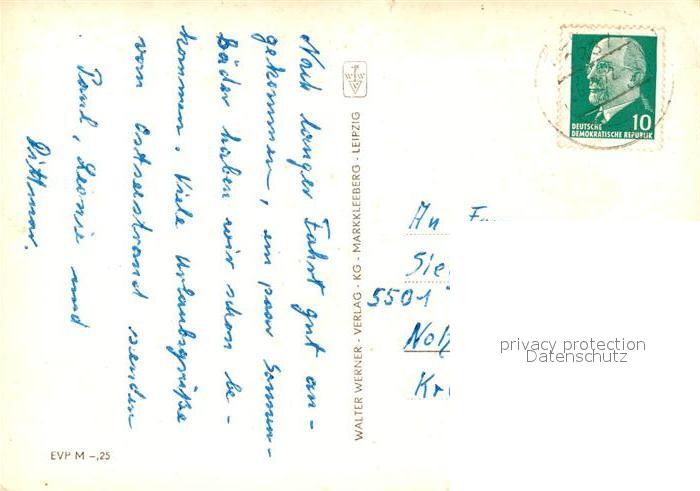 Nach langer Fahrt gut an-
gekommen, ein paar Sonnen-
bäder haben wir schon be-
kommen. Viele Urlaubsgrüße
vom Ostseestrand senden
Paul, Leonie und
Dittmar.
EVP M –,25
WALTER WERNER - VERLAG - KG - MARKKLEEBERG - LEIPZIG
10
DEUTSCHE
DEMOKRATISCHE REPUBLIK
An
5501
privacy protection
Datenschutz